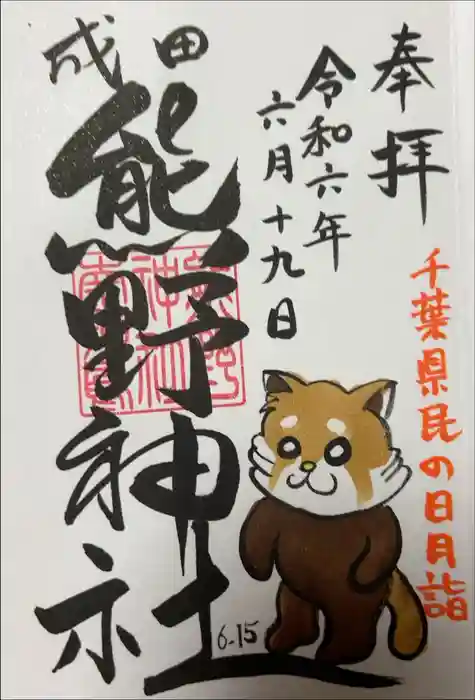 奉拝
令和六年
六月十九日
成田
熊野神社
千葉県民の日月詣
6-15